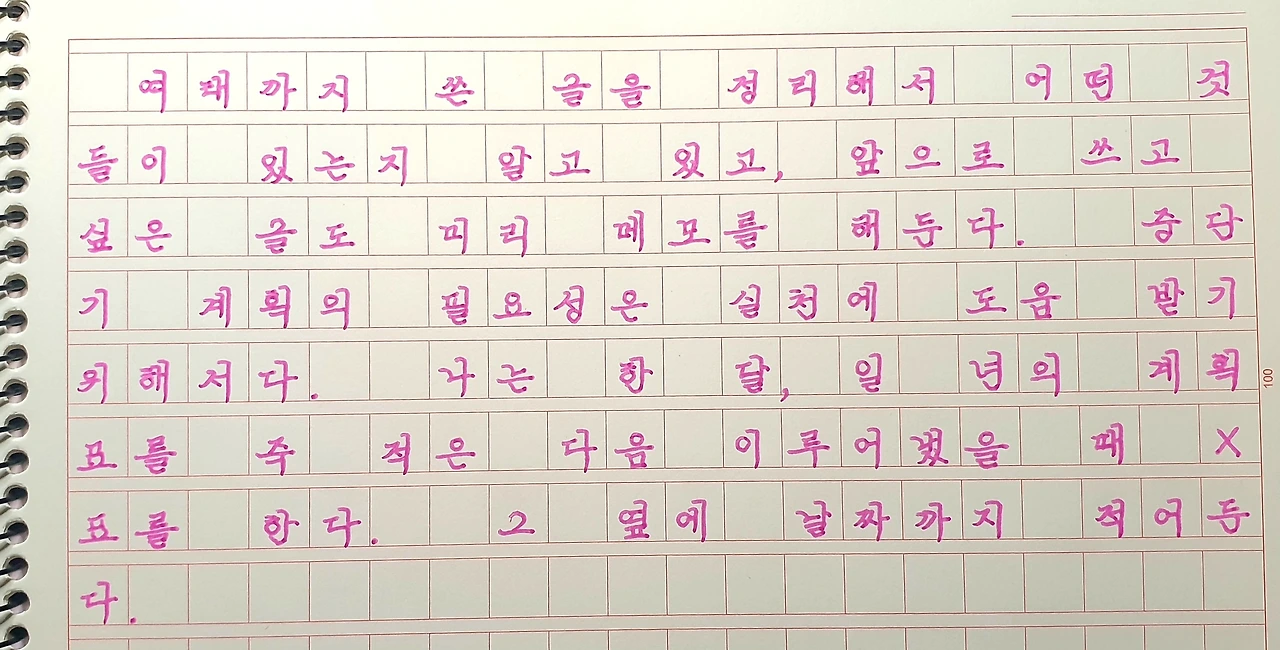 여태까지 쓴 글을 정리해서 어떤 것
들이 있는지 알고 있고, 앞으로 쓰고
싶은 글도 미리 메모를 해둔다. 중단
기 계획의 필요성은 실천에 도움 받기
위해서다. 나는 한 달, 일 년의 계획
표를 주 적은 다음 이루어졌을 때 X
표를 한다. 그 옆에 날짜까지 적어둔
다.
100